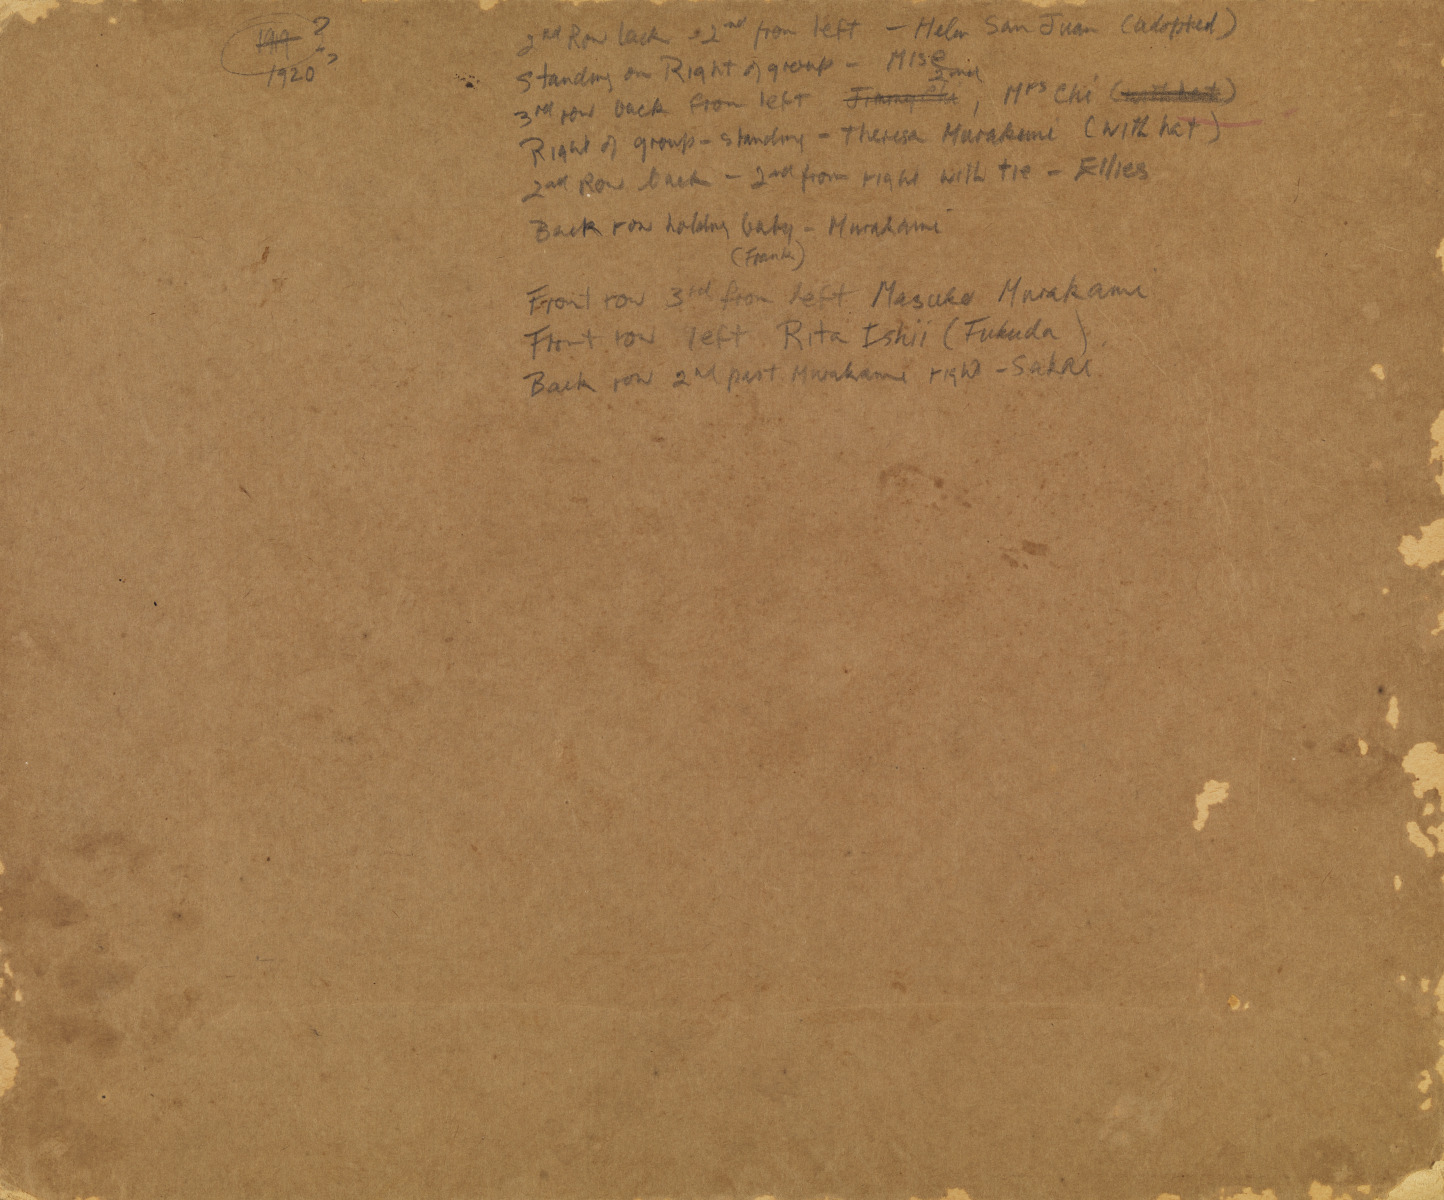 1919 ?
1920 ?
2nd Row back - 2nd from left - Helen San Juan (adopted)
Standing on Right of group - MISE
2nd
3rd row back from left Jimmy Chi, Mrs Chi (with hat)
Right of group - standing - Theresa Murakami (with hat)
2nd Row back - 2nd from right with tie - Ellies
Back row holding baby - Murakami
(Frank)
Front row 3rd from left Masuko Murakami
Front row left Rita Ishii (Fukuda)
Back row 2nd past Murakami right - Sakai